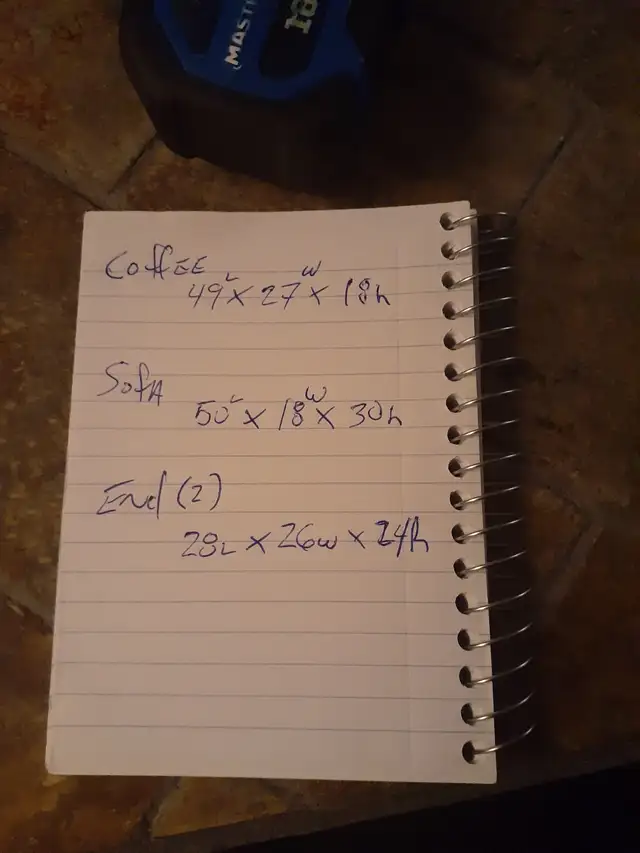 MAST
18
CoffEE
49L x 27W x 18h
SofA
50L x 18W x 30h
End (2)
28L x 26w x 24h